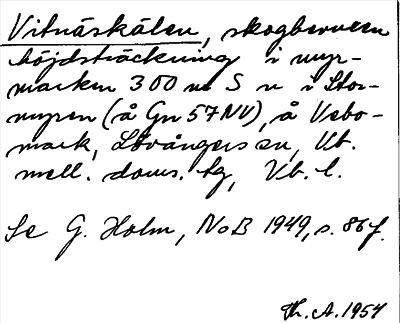 Vitnäskälen, skogbevuxen
höjdsträckning i myr-
marken 300 m S v i Stor-
myren (å Gn 57NV), å Vebo-
mark, Lövångers sn, Vb.
mell. doms. tg, Vb. l.
Se G. Holm, NoB 1949, s. 86 f.
Th. A. 1954